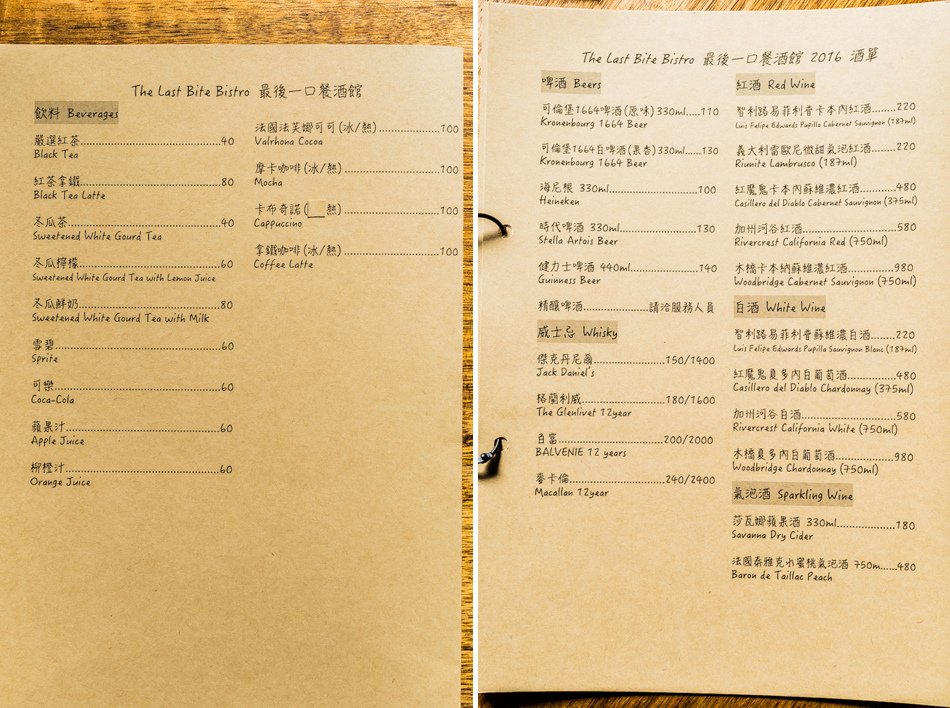 The Last Bite Bistro 最後一口餐酒館
飲料 Beverages
嚴選紅茶..............................40
Black Tea
紅茶拿鐵..............................80
Black Tea Latte
冬瓜茶..............................40
Sweetened White Gourd Tea
冬瓜檸檬..............................60
Sweetened White Gourd Tea with Lemon Juice
冬瓜鮮奶..............................80
Sweetened White Gourd Tea with Milk
雪碧..............................60
Sprite
可樂..............................60
Coca-Cola
蘋果汁..............................60
Apple Juice
柳橙汁..............................60
Orange Juice
法國法芙娜可可(冰/熱)..............................100
Valrhona Cocoa
摩卡咖啡(冰/熱)..............................100
Mocha
卡布奇諾( 熱)..............................100
Cappuccino
拿鐵咖啡(冰/熱)..............................100
Coffee Latte
The Last Bite Bistro 最後一口餐酒館 2016 酒單
啤酒 Beers
可倫堡1664啤酒(原味)330ml.....110
Kronenbourg 1664 Beer
可倫堡1664白啤酒(果香)330ml......130
Kronenbourg 1664 Beer
海尼根 330ml..............................100
Heineken
時代啤酒 330ml..............................130
Stella Artois Beer
健力士啤酒 440ml..............................140
Guinness Beer
精釀啤酒....................請洽服務人員
威士忌 Whisky
傑克丹尼爾....................150/1400
Jack Daniel's
格蘭利威....................180/1600
The Glenlivet 12year
百富..............................200/2000
BALVENIE 12 years
麥卡倫....................240/2400
Macallan 12year
紅酒 Red Wine
智利路易菲利普卡本內紅酒......220
Luis Felipe Edwards Pupilla Cabernet Sauvignon (187ml)
義大利雷歐尼微甜氣泡紅酒.......220
Riunite Lambrusco (187ml)
紅魔鬼卡本內蘇維濃紅酒.........480
Casillero del Diablo Cabernet Sauvignon (375ml)
加州河谷紅酒..............................580
Rivercrest California Red (750ml)
木橋卡本納蘇維濃紅酒...............980
Woodbridge Cabernet Sauvignon (750ml)
白酒 White Wine
智利路易菲利普蘇維濃白酒........220
Luis Felipe Edwards Pupilla Sauvignon Blanc (187ml)
紅魔鬼夏多內白葡萄酒...............480
Casillero del Diablo Chardonnay (375ml)
加州河谷白酒..............................580
Rivercrest California White (750ml)
木橋夏多內白葡萄酒..................980
Woodbridge Chardonnay (750ml)
氣泡酒 Sparkling Wine
莎瓦娜蘋果酒 330ml..................180
Savanna Dry Cider
法國泰雅克水蜜桃氣泡酒 750m......480
Baron de Taillac Peach